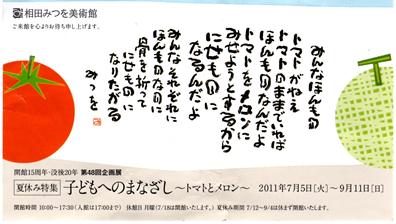 相田みつを美術館
ご来館を心よりお待ち申し上げます。
みんなほんもの
トマトがねえ
トマトのままでいれば
ほんものなんだよ
トマトをメロンに
みせようとするから
にせものに
なるんだよ
みんなそれぞれに
ほんものなのに
骨を折って
にせものに
なりたがる
みつを
開館15周年・没後20年 第48回企画展
夏休み特集 子どもへのまなざし ～トマトとメロン～ 2011年7月5日[火]～9月11日[日]
開館時間 10:00～17:30(入館は17:00まで) 休館日 月曜(7/18は開館いたします。) 夏休み期間 7/12～9/4は休まず開館いたします。